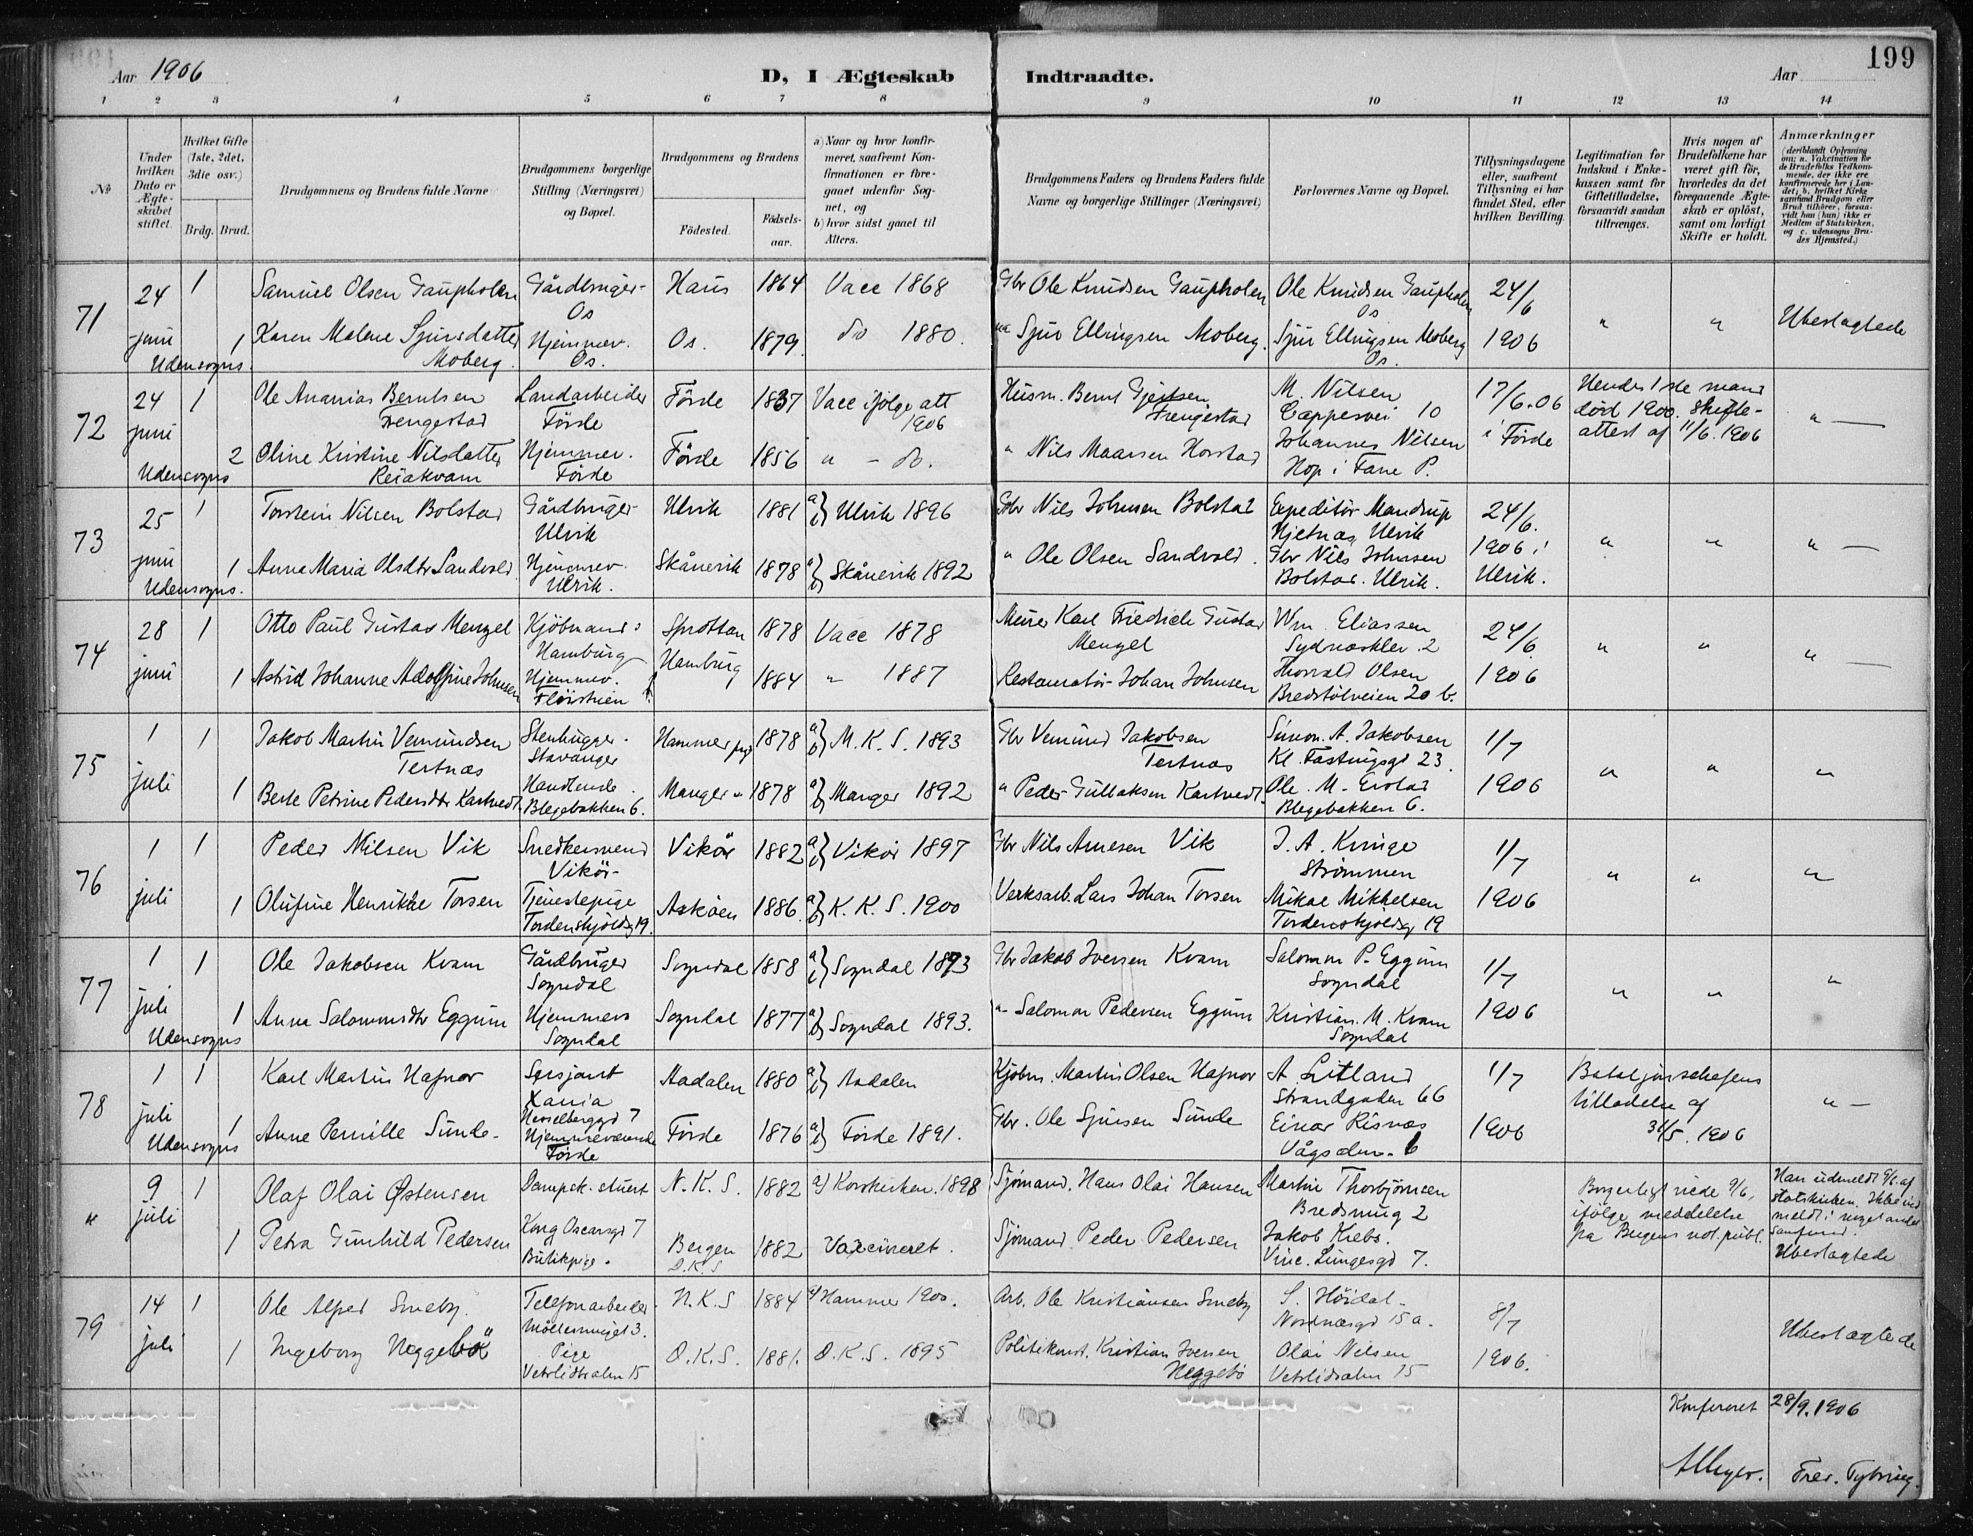 199
Aar 1906
D, I Ægteskab Indtraadte.
Aar
1 2 3 4 5 6 7 8 9 10 11 12 13 14
No
Under hvilken Dato er Ægteskabet stiftet.
Hvilket Gifte (1ste, 2det, 3die osv.)
Brdg. Brud.
Brudgommens og Brudens fulde Navne
Brudgommens borgerlige Stilling (Næringsvei) og Bopæl.
Brudgommens og Brudens
Fødested.
Fødselsaar.
a) Naar og hvor konfirmeret, saafremt Konfirmationen er foregaaet udenfor Sognet, og
b) hvor sidst gaaet til Alters.
Brudgommens Faders og Brudens Faders fulde Navne og borgerlige Stillinger (Næringsvei)
Forlovernes Navne og Bopæl.
Tillysningsdagene eller, saafremt Tillysning ei har fundet Sted, efter hvilken Bevilling.
Legitimation for Indskud i Enkekassen samt for Giftetilladelse, forsaavidt saadan tiltrænges.
Hvis nogen af Brudefolkene har været gift før, hvorledes da det foregaaende Ægteskab er opløst, samt om lovligt Skifte er holdt.
Anmærkninger
(deriblandt Oplysning om: a. Vakcination for de Brudefolks Vedkommende, der ikke ere konfirmerede her i Landet; b. hvilket Kirkesamfund Brudgom eller Brud tilhører, forsaavidt han (hun) ikke er Medlem af Statskirken, og c. udensogns Brudes Hjemsted.)
71 24 juni Udensogns. 1 Samuel Olsen Gaupholm Gårdbruger Os Haus 1864 Vacc 1868 Gbr Ole Knudsen Gaupholm Ole Knudsen Gaupholm Os 24/6 " " Ubeslagtede
1 Karen Malene Sjursdatter Moberg. Hjemmev. Os. Os. 1879 do 1880. Sjur Ellingsen Moberg. Sjur Ellingsen Moberg Os. 1906
72 24 juni Udensogns 1 Ole Ananias Berntsen Frengestad Landarbeider Førde Førde 1837 Vacc ifølge att 1906 Husm. Bernt Gjertsen Frengestad M. Nilsen Cappesvei 10 17/6.06 Hendes 1ste mand død 1900. Skifteattest af 11/6.1906 "
2 Oline Kristine Nilsdatter Hjemmev. Førde Førde 1856 " - do. " Nils Maarsen Horstad Johannes Nilsen Hop i Fane P. i Førde
73 25 juni Udensogns. 1 Torstein Nilsen Bolstad Gårdbruger Ulvik Ulvik 1881 a) b) Ulvik 1896 Gbr Nils Johnsen Bolstad Expeditør Mandrup Hjetnæs Ulvik 24/6. " " "
1 Anna Maria Olsdtr Sandvold Hjemmev. Ulvik. Skånevik 1878 a) b) Skånevik 1892 " Ole Olsen Sandvold. Gbr Nils Johnsen Bolstad. Ulvik. 1906 i Ulvik.
74 28 juni 1 Otto Paul Gustav Menzel Kjøbmand: Hamburg Sprottau 1878 Vacc 1878 Murer Karl Friedrich Gustav Menzel Wm. Eliassen Sydnæskler. 2 24/6 " " "
1 Astrid Johanne Adolfine Johnsen Hjemmev. Fløistuen Hamburg 1884 " 1887 Restauratør Johan Johnsen Thorvald Olsen Bredstølveien 20 b. 1906
75 1 juli 1 Jakob Martin Vemundsen Tertnæs Stenhugger. Stavanger Hammer pgd 1878 a) b) M. K. S. 1893 Gbr Vemund Jakobsen Tertnæs Simon. A. Jakobsen Kl. Fastingsgd 23. 1/7 " " "
1 Berte Petrine Pedersdtr Kartvedt Handlende. Blegebakken 6. Manger " 1878 a) b) Manger 1892 " Peder Gullaksen Kartvedt Ole. M. Blegebakken 6. 1906
76 1 juli 1 Peder Nilsen Vik Snedkersvend Vikör Vikör 1882 a) b) Vikør 1897 Gbr Nils Arnesen Vik J. A. Kvinge Strømmen 1/7 " " "
1 Olufine Henrikke Torsen Tjenestepige Tordenskjöldsg 19. Askøen 1886. a) b) K. K. S. 1900 Verksarb. Lars Johan Torsen Mikae Mikkelsen Tordenskjöldsg 19 1906
77 1 juli Udensogns 1 Ole Jakobsen Kvam Gårdbruger Sogndal Sogndal 1858 a) b) Sogndal 1873 Gbr Jakob Iversen Kvam Salomon P. Eggum Sogndal 1/7 " " "
1 Anna Salomonsdtr Eggum Hjemmevs Sogndal Sogndal 1877 a) b) Sogndal 1893. " Salomon Pedersen Eggum Kristian. M. Kvam Sogndal 1906
78 1 juli Udensogns 1 Karl Martin Hafnor Sersjant Xania Hesselberggd 7 Aadalen 1880 a) b) Aadalen Kjøbm. Martin Olsen Hafnor A. Litland Strandgaden 66 1/7 Bataljonschefens tilladelse af 31/5. 1906 "
1 Anne Pernille Sunde Hjemmeværende Førde Førde 1876 a) b) Førde 1891. Gbr. Ole Sjursen Sunde Einar Risnæs Vågsalm. 6 1906
" 9 juli 1 Olaf Olai Østensen Dampsk. stuert Kong Oscarsgd 7 N. K. S. 1882 a) Korskirken. 1898 Sjømand. Hans Olai Hansen Martin Thorbjörnsen Bredsmug 2 Borgerligt viede 9/6, ifølge meddelelse fra Bergens not. publ. Han udmeldt 9/6 af statskirken. Ikke indmeldt i noget andet samfund. Ubeslagtede
1 Petra Gunhild Pedersen Butikpige. Bergen D.K.S 1882 Vaxcineret. Sjømand. Peder Pedersen Jakob Krebs. Vinc. Lungesgd 7.
79 14 juli 1 Ole Alfred Smeby. Telefonarbeider Möllersmuget 3. N.K.S 1884 a) Hammer 1900. Arb. Ole Kristiansen Smeby S. Höidal Nordnæsgd 15 a. 8/7 Ubeslagtede
1 Ingeborg Heggebö Pige Vetrlidsalm 15 D.K.S. 1881. D.K.S. 1895 Politikonst. Kristian Iversen Heggebö Olai Nilsen Vetrlidsalm 15 1906.
Konfereret 28/9.1906